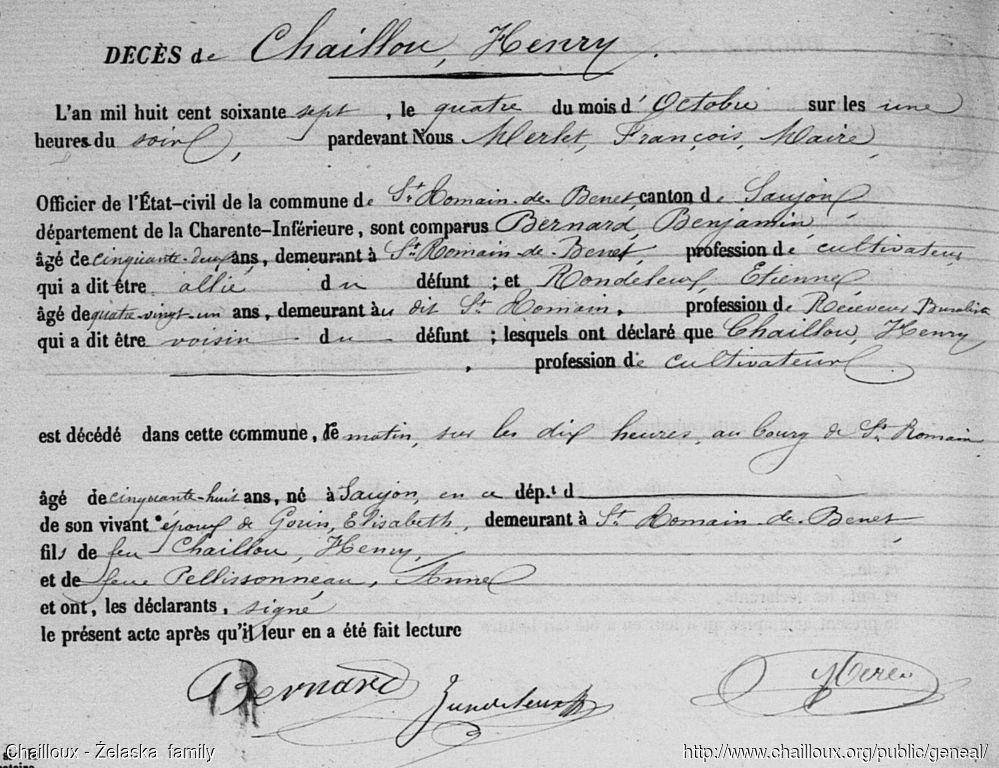 DECÈS de Chaillou, Henry.
L'an mil huit cent soixante sept, le quatre du mois d'Octobre sur les une
heures du soir, pardevant Nous Merlet, François, Maire,
Officier de l'État-civil de la commune de St Romain-de-Benet, canton de Saujon,
département de la Charente-Inférieure, sont comparus Bernard, Benjamin,
âgé de cinquante-deux ans, demeurant à St Romain-de-Benet, profession de cultivateur
qui a dit être allié du défunt ; et Rondeleux, Etienne
âgé de quatre-vingt-un ans, demeurant au dit St Romain, profession de Receveur Buraliste
qui a dit être voisin du défunt ; lesquels ont déclaré que Chaillou, Henry
, profession de cultivateur.
est décédé dans cette commune, le matin, sur les dix heures, au bourg de St Romain
âgé de cinquante-huit ans, né à Saujon, en ce dép.t d
de son vivant époux de Gorin, Elisabeth, demeurant à St Romain-de-Benet,
fils de feu Chaillou, Henry,
et de feue Pellissonneau, Anne
et ont, les déclarants, signé
le présent acte après qu'il leur en a été fait lecture
Bernard
Chailloux - Želaska family http://www.chailloux.org/public/geneal/